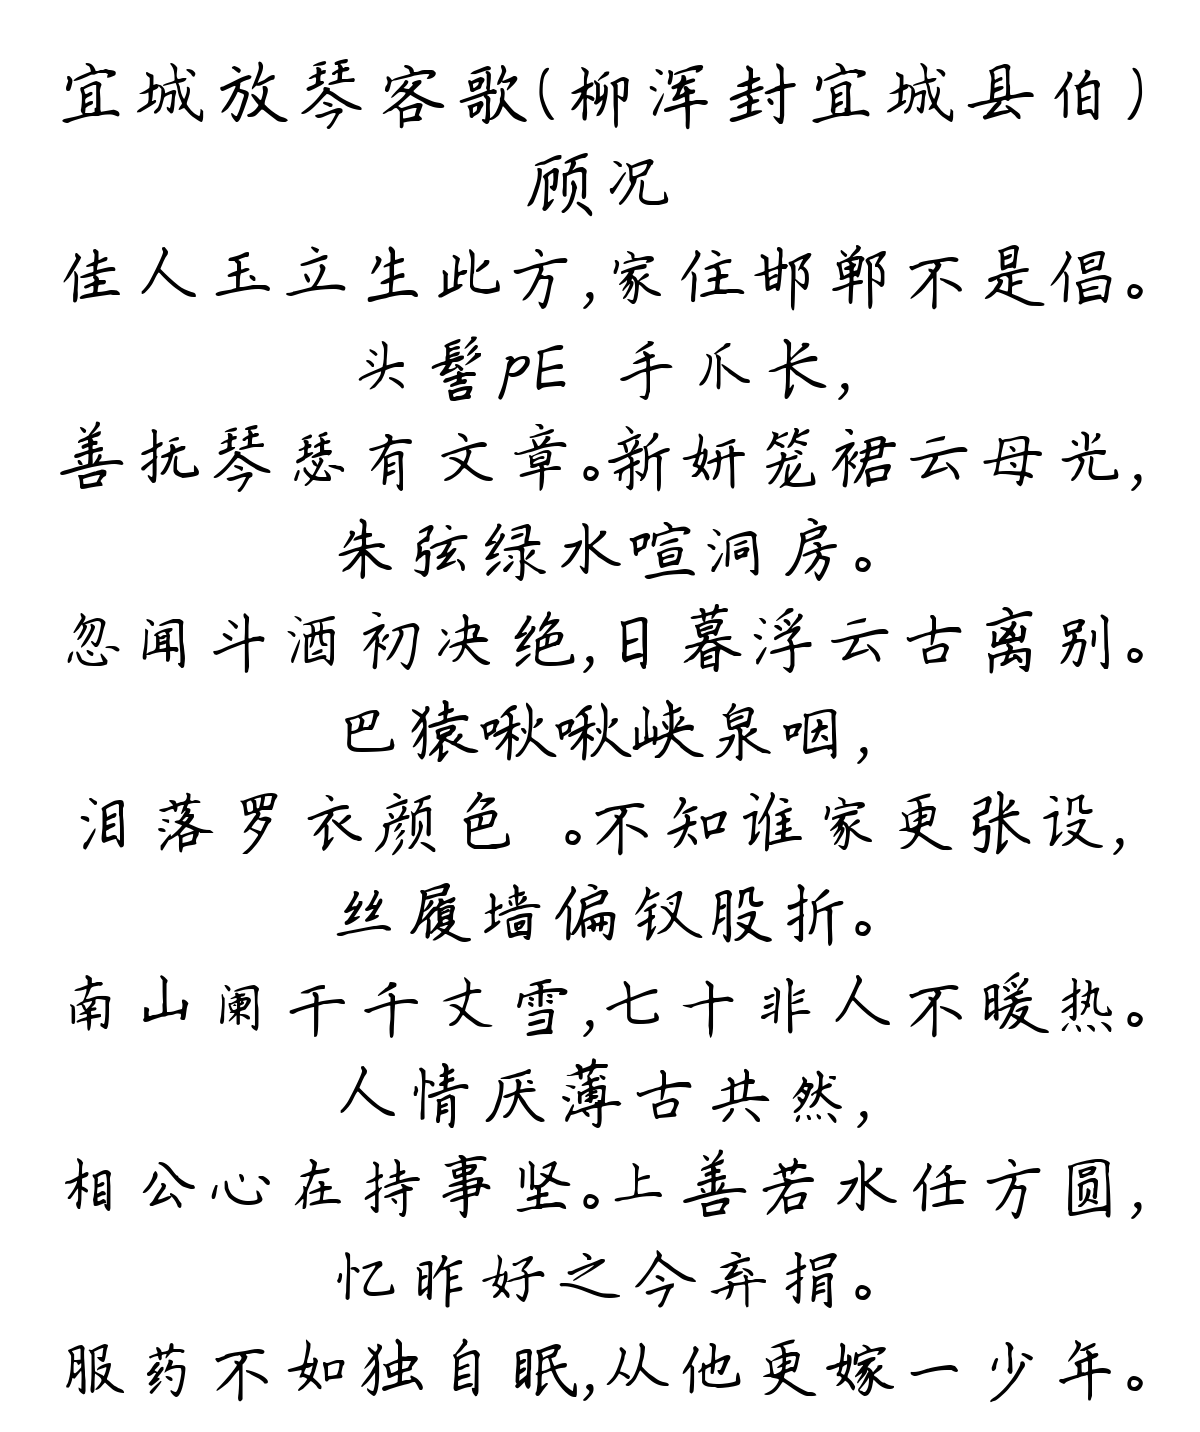 宜城放琴客歌(柳浑封宜城县伯)
顾况
佳人玉立生此方,家住邯郸不是倡。
头髻pE 手爪长,
善抚琴瑟有文章。新妍笼裙云母光,
朱弦绿水喧洞房。
忽闻斗酒初决绝,日暮浮云古离别。
巴猿啾啾峡泉咽,
泪落罗衣颜色 。不知谁家更张设,
丝履墙偏钗股折。
南山阑干千丈雪,七十非人不暖热。
人情厌薄古共然,
相公心在持事坚。上善若水任方圆,
忆昨好之今弃捐。
服药不如独自眠,从他更嫁一少年。